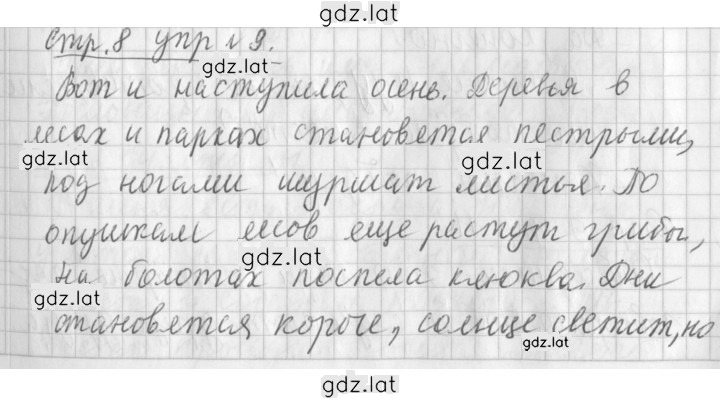 gdz.lat
стр. 8 упр № 9.
gdz.lat
Вот и наступила осень. Деревья в
лесах и парках становятся пестрыми,
gdz.lat
gdz.lat
под ногами шуршат листья. По
опушкам лесов еще растут грибы,
gdz.lat
на болотах поспела клюква. Дни
gdz.lat
становятся короче, солнце светит, но
gdz.lat
gdz.lat